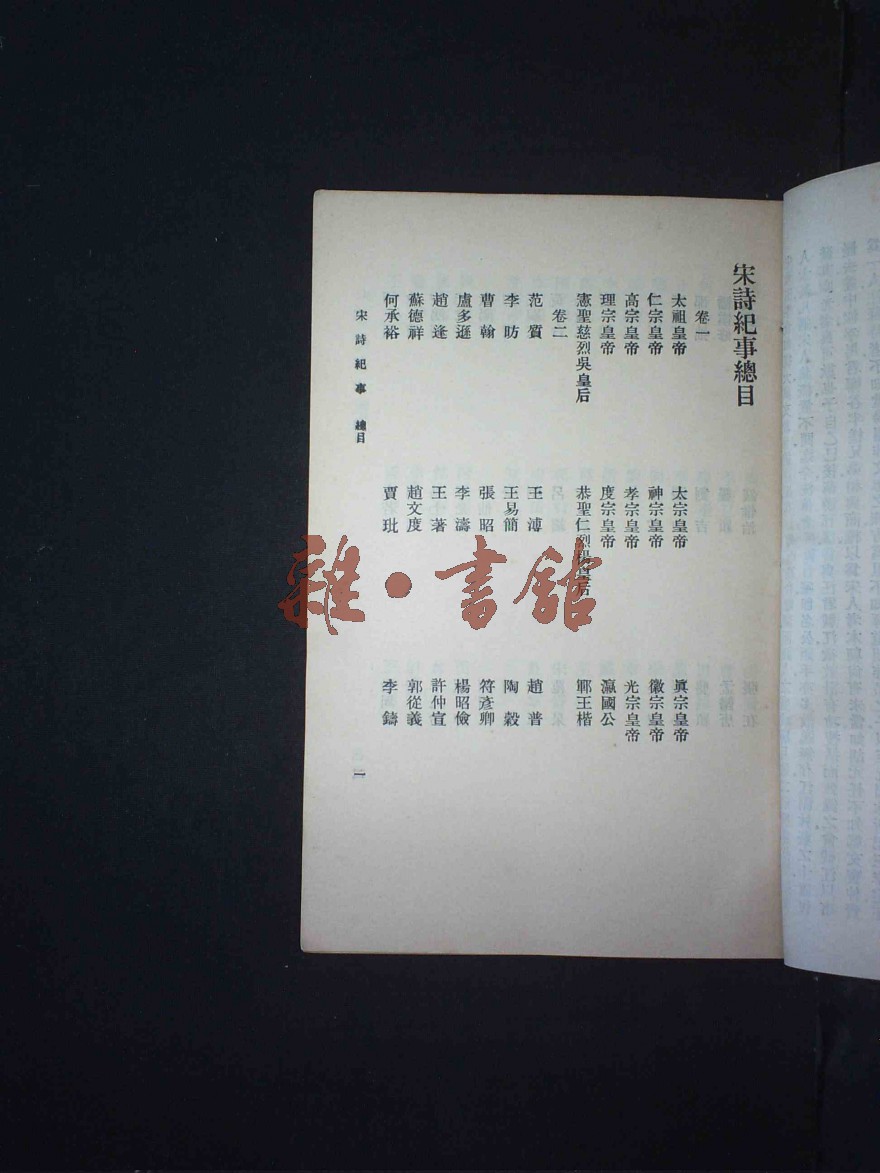 宋詩紀事總目
卷一
太祖皇帝　太宗皇帝　眞宗皇帝
仁宗皇帝　神宗皇帝　徽宗皇帝
高宗皇帝　孝宗皇帝　光宗皇帝
理宗皇帝　度宗皇帝　瀛國公
憲聖慈烈吳皇后　恭聖仁烈楊皇后　鄆王楷
卷二
范質　王溥　趙普
李昉　王易簡　陶穀
曹翰　張昭　符彥卿
盧多遜　李濤　楊昭儉
趙逢　王著　許仲宣
蘇德祥　趙文度　郭從義
何承裕　賈玭　李鑄
宋詩紀事　總目　一
雜·書館